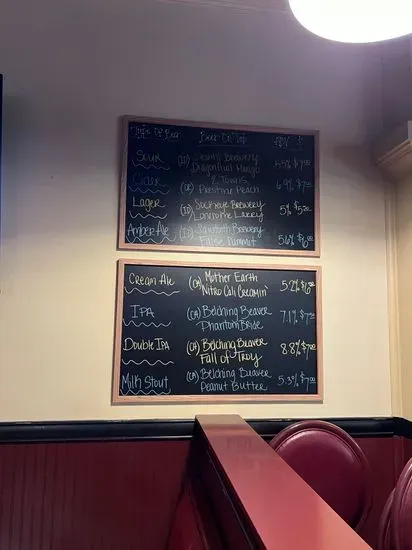 Type Of Beer Beer On Tap ABV $
Sour (ID) Brewery
Dragonfruit Mango 4.5% $7.00
Cider (OR) 2 Towns
Prestine Peach 6.9% $7.00
Lager (ID) Sockeye Brewery
Lonesome Larry 5% $5.50
Amber Ale (ID) Sawtooth Brewery
False Summit 5.6% $6.00
Cream Ale (CA) Mother Earth
Nitro Cali Creamin' 5.2% $6.00
IPA (CA) Belching Beaver
Phantom Bride 7.1% $7.00
Double IPA (CA) Belching Beaver
Fall of Troy 8.8% $7.00
Milk Stout (CA) Belching Beaver
Peanut Butter 5.3% $7.00